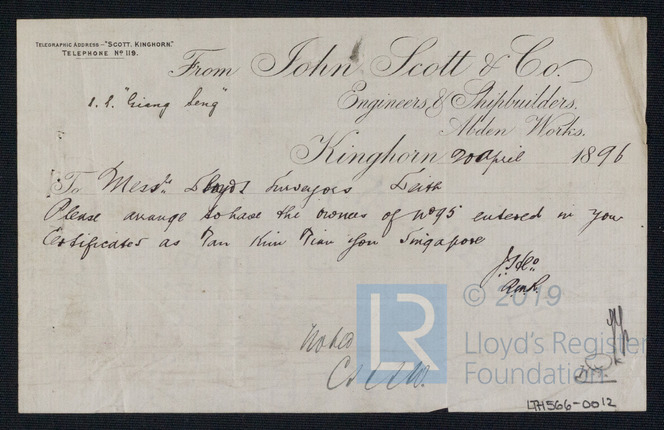 TELEGRAPHIC ADDRESS—"SCOTT. KINGHORN."
TELEPHONE No 119.
From John Scott & Co.
Engineers, & Shipbuilders,
Abden Works.
s.s. "Giang Seng"
Kinghorn 20 April 1896
To Messrs Lloyds Surveyors Leith
Please arrange to have the owners of No 95 entered in your
Certificates as Tan Kim Tian Son Singapore
J. S & Co
Noted
© 2019
LR
Lloyd's Register
Foundation
LTH566-0012